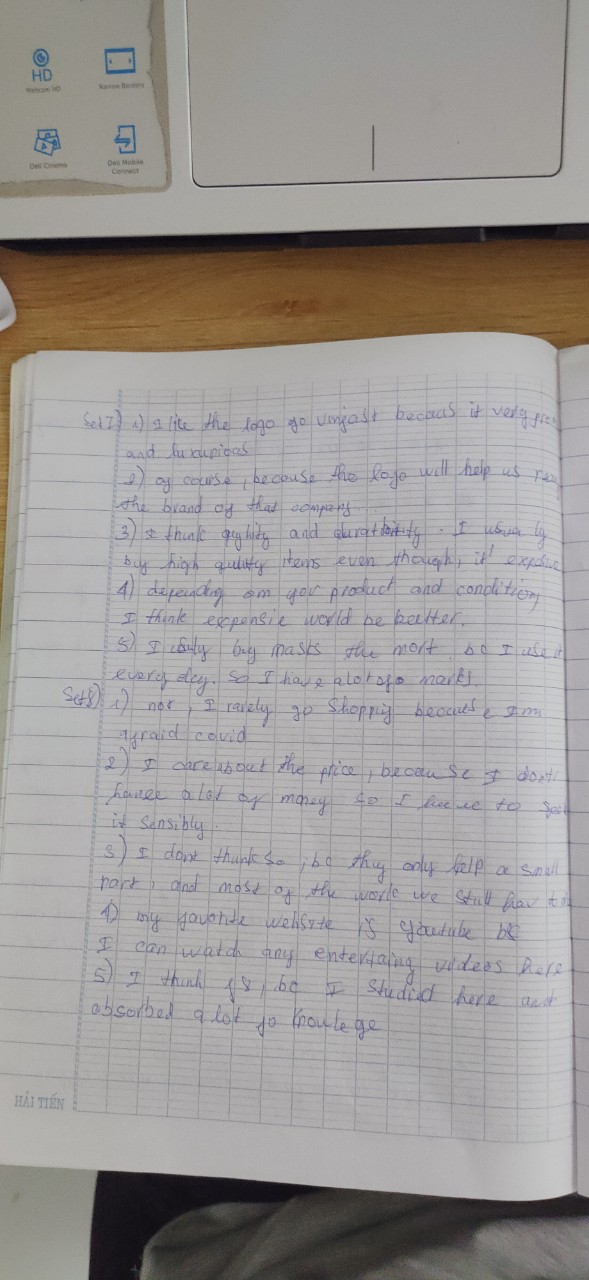 HD
Webcam HD
Narrow Borders
Dell Cinema
Dell Mobile
Connect
Set 7) 1) I like the logo go vinfast becaus it very
and luxupious
2) of course, because the logo will help us
the brand of that company
3) I think quality and durathity. I usualy
buy high quality items even though, it'
4) depending on your product and condition
I think expensie world be better.
5) I buy masks the mort. bc I use it
every day. So I have a lot ofo marks.
Set 8) 1) not, I rarely go shopping because I'm
afraid covid
2) I care about the price, because I dont
have a lot of money so I have to
it sensibly.
3) I dont think so, bc they only help a small
part, and most of the work we still hav to
4) my favorite website is youtube bc
I can watch any entertaing videos here
5) I think, bc I studied here and
absorbed a lot fo knowlege
HẢI TIẾN